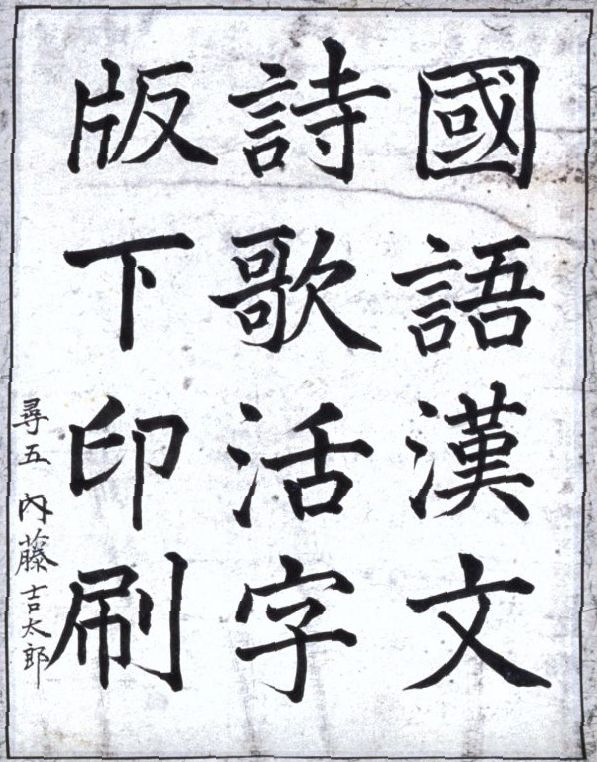 國語漢文
詩歌活字
版下印刷
尋五 内藤吉太郎